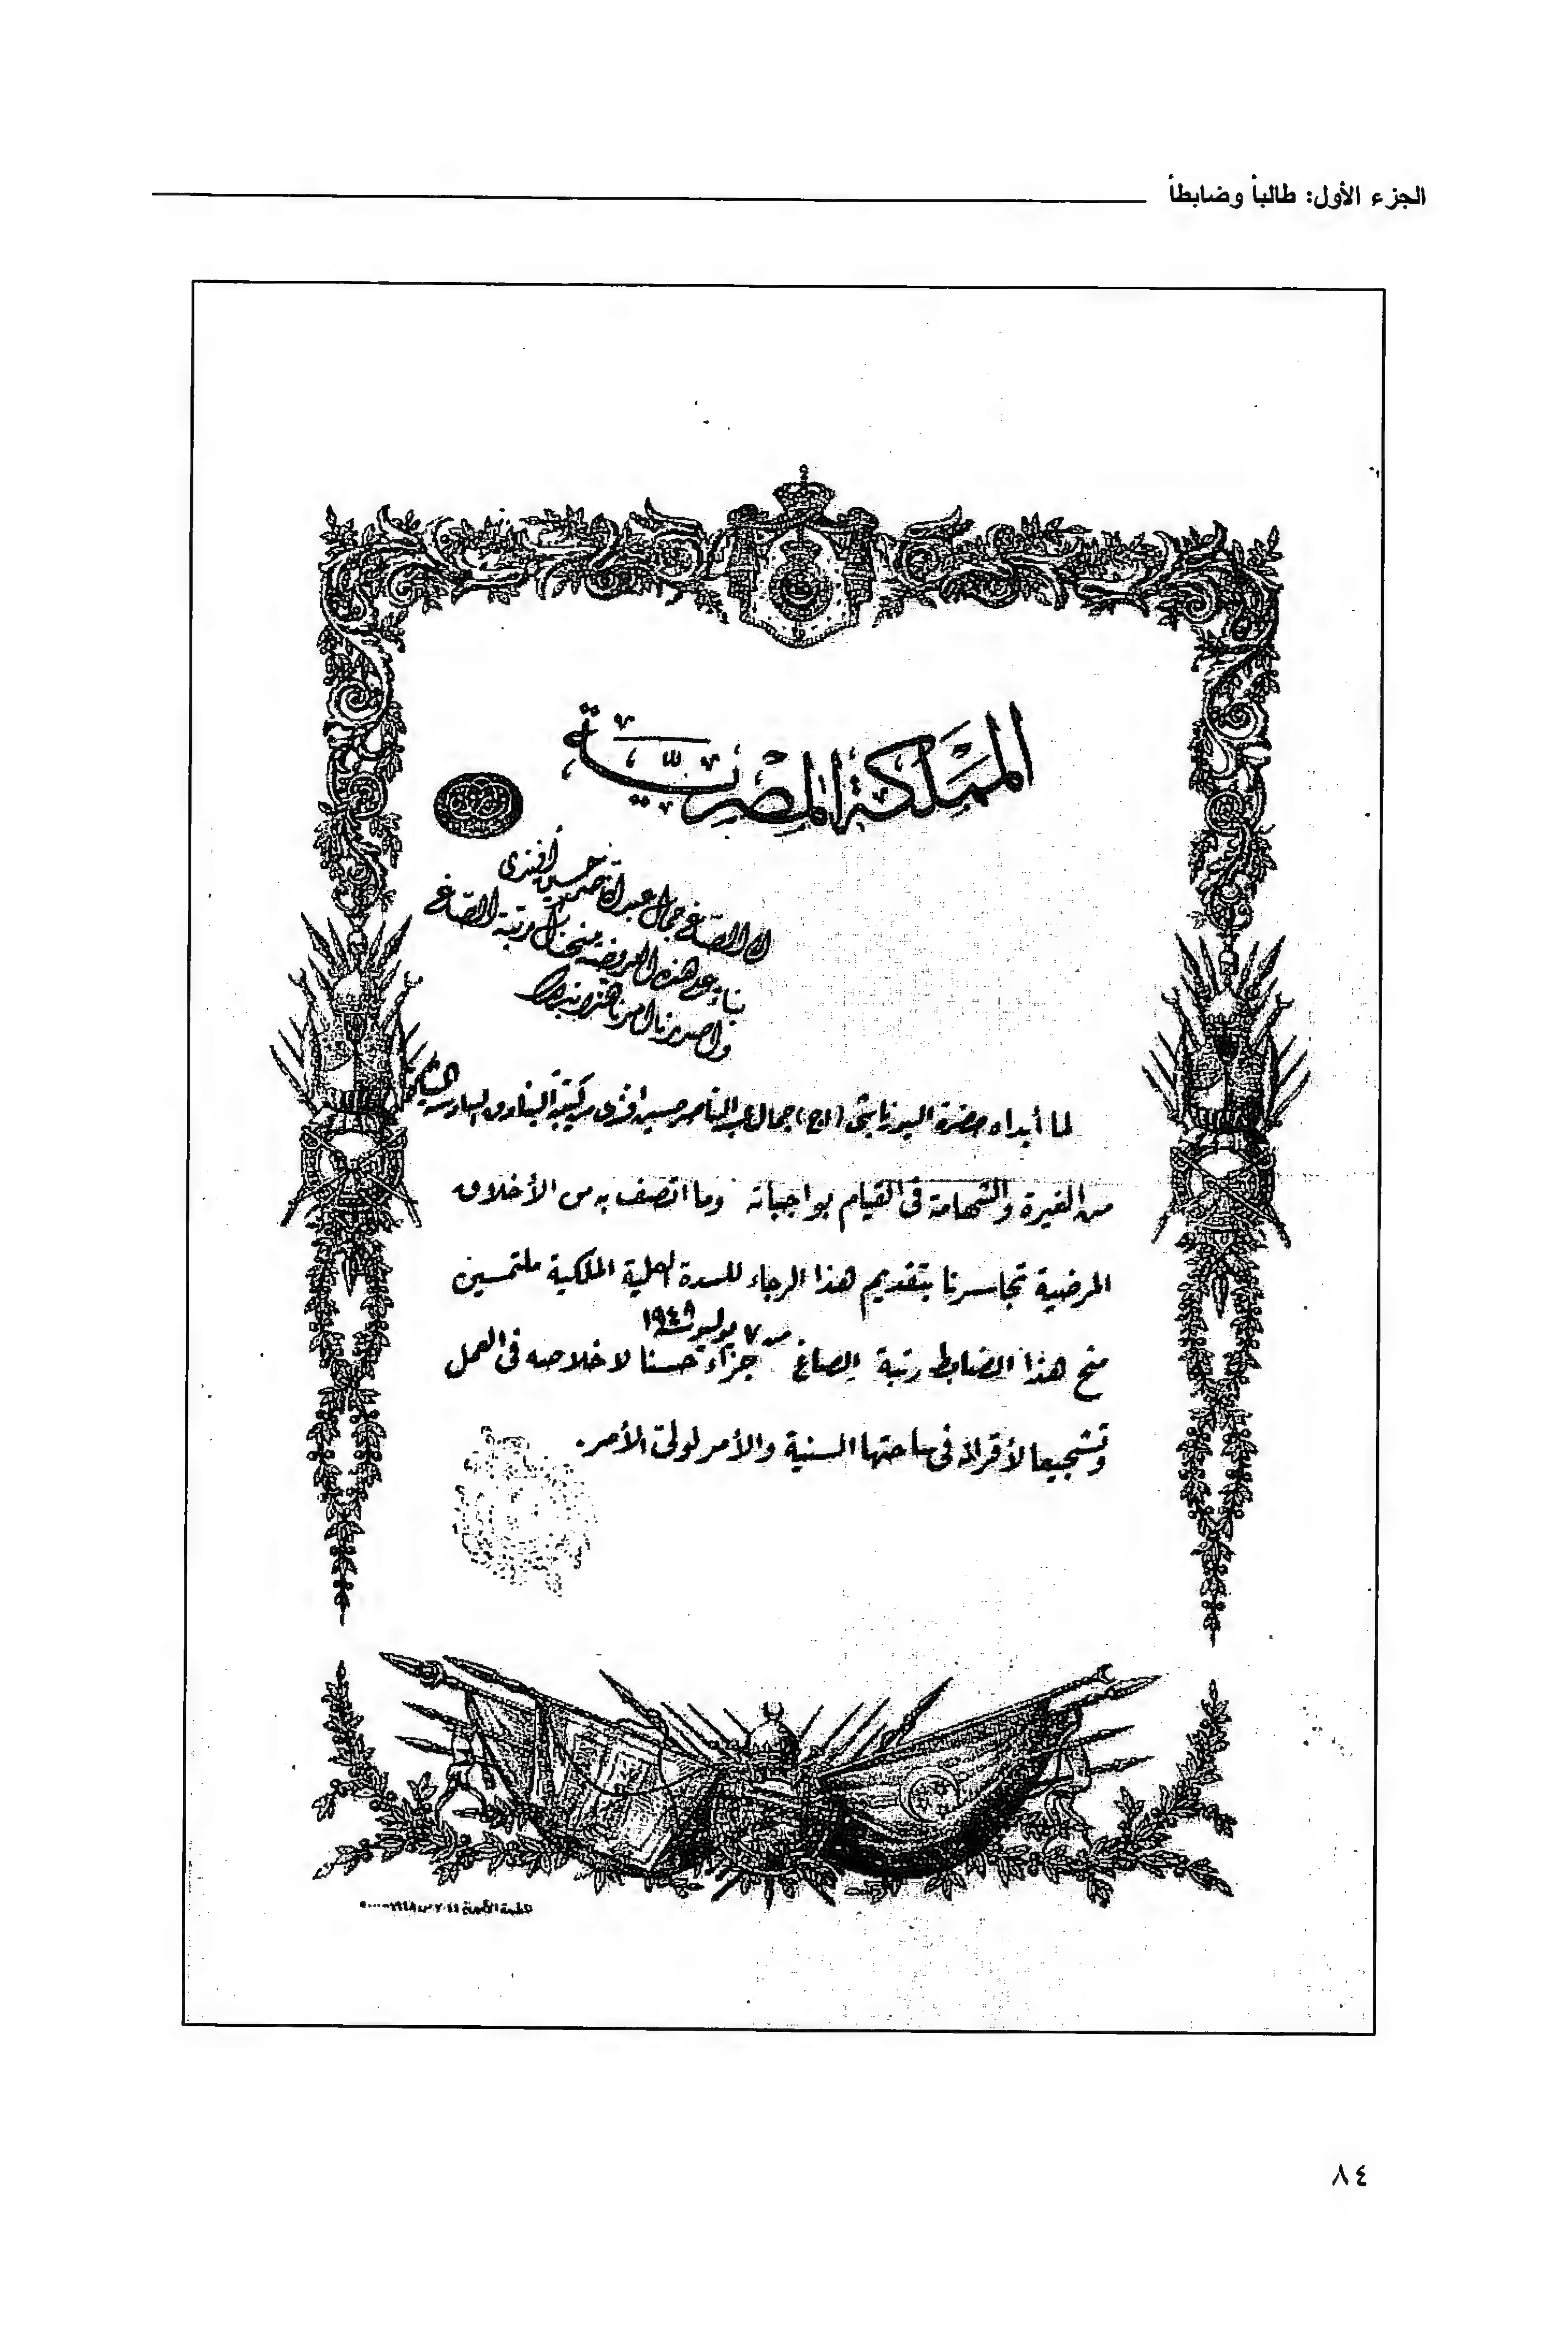 الجزء الأول: طالباً وضابطاً
المملكة المصرية
الى الصاغ جمال عبد الناصر حسين أفندى
بناء على هذه العريضة منحناك رتبة الصاغ
وأصدرنا أمرنا هذا بذلك
لما أبداه حضرة اليوزباشى (أ.ح) جمال عبد الناصر حسين افندى من كتيبة البنادق السادسة المشاة
من الغيرة والشهامة فى القيام بواجباته وما اتصف به من الأخلاق
المرضية تجاسرنا بتقديم هذا الرجاء للسدة العلية الملكية ملتمسين
من ٧ يوليو سنة ١٩٤٨
منح هذا الضابط رتبة الصاغ جزاء حسنا لاخلاصه فى العمل
وتشجيعا لأقرانه فى ساحتها السنية والأمر لولى الأمر.
٨٤